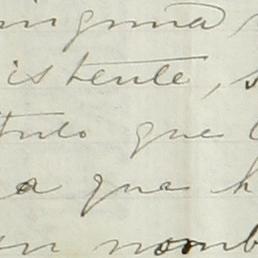 ninguna
istente, s
tulo que
a que h
un nomb